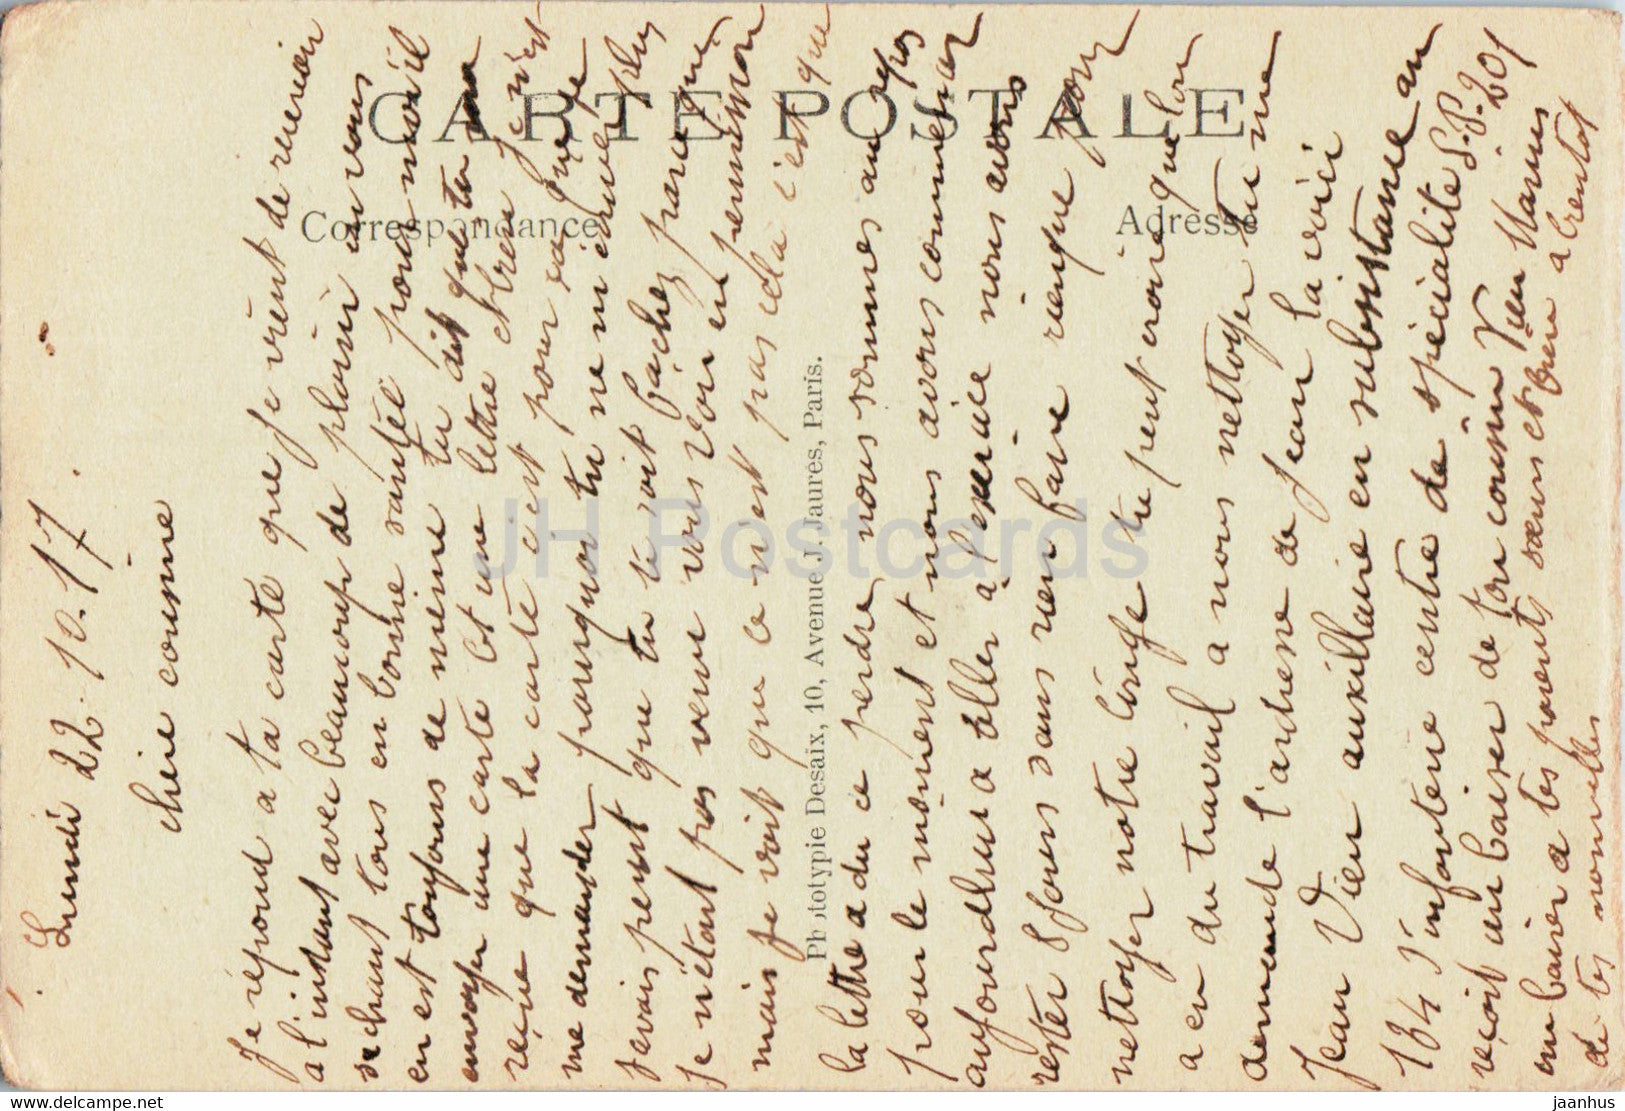 CARTE POSTALE
Correspondance
Adresse
Phototypie Desaix, 10, Avenue J. Jaurès, Paris.
Lundi 22. 10. 17.
chère cousine
Je répond a ta carte que je vient de recevoir
a l'instant avec beaucoup de plaisir en vous
sachant tous en bonne santée pour moi il
en est toujours de même tu dit que tu
envoyer une carte et une lettre et bien je n'est
reçue que la carte c'est pour sa que je
me demander pourquoi tu ne m'écriver plus
je vais peut que tu te soit fachez parce que
je n'étant pas venu vous voir en permission
mais je voit que ce n'est pas cela c'est que
la lettre a du ce perdre nous sommes au repos
pour le moment et nous avons commensar
aujourd'hui a aller à l'exercice nous avons
rester 8 jours sans rien faire rien que pour
nettoyer notre linge tu peut croire que l'on
a eu du travail a nous nettoyer tu me
demande l'adresse de Jean la voici
Jean Vieu auxillaire en subsistance au
134 d'infanterie centre de spécialité S.P. 201
reçoit un baiser de ton cousin Vieu Marius
un baiser a tes parents sœurs et a bientot
de tes nouvelles
JH Postcards
delcampe.net
jaanhus